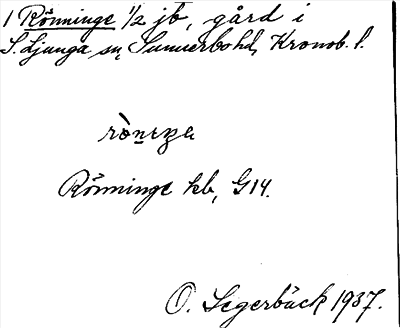 1 Rönninge 1/2 jb, gård i
S. Ljunga sn, Sunnerbohd, Kronob. l.
Rönninge hb, G14.
O. Segerbäck 1937.